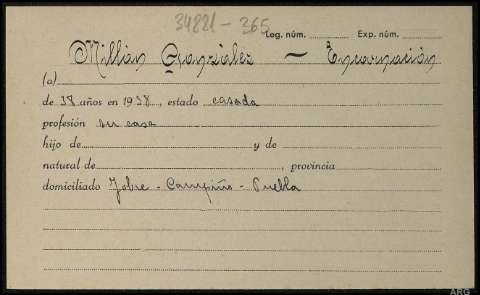 34821-365
Leg. núm. Exp. núm.
Millián González — Encarnación
(a)
de 38 años en 1938, estado casada
profesión su casa
hijo de y de
natural de, provincia
domiciliado Jobre - Caramiño - Puebla
ARG